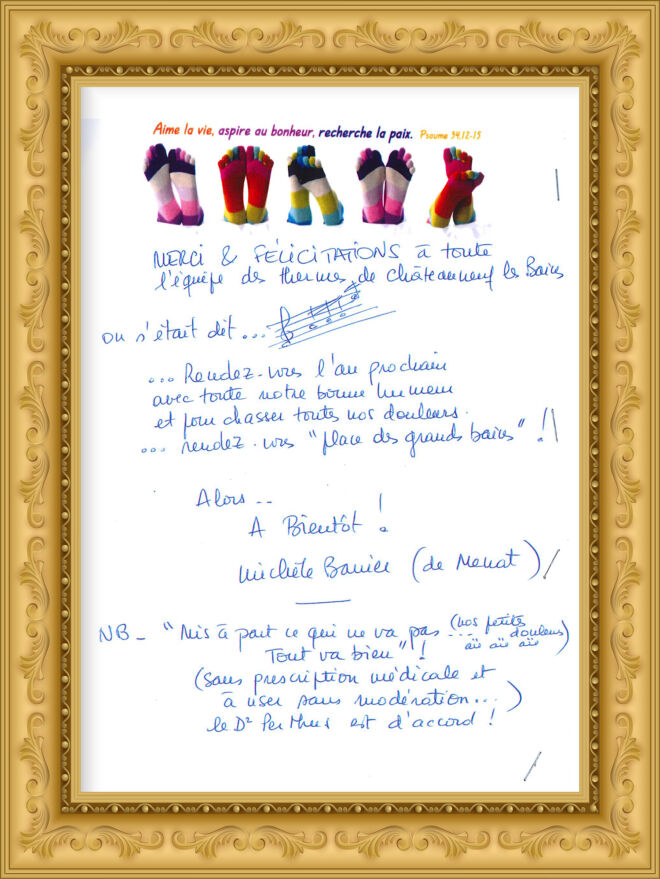 Aime la vie, aspire au bonheur, recherche la paix. Psaume 34,12-15
MERCI & FÉLICITATIONS à toute
l'équipe des thermes de châteauneuf les Bains
on s'était dit ...
... Rendez-vous l'an prochain
avec toute notre bonne humeur
et pour chasser toutes nos douleurs.
... rendez-vous "place des grands bains" !
Alors ..
A Bientôt !
Michèle (de Menat)
NB - "Mis à part ce qui ne va pas ... (nos petites douleurs
aïe aïe aïe)
Tout va bien" !
(sans prescription médicale et
à user sans modération...)
le Dr est d'accord !